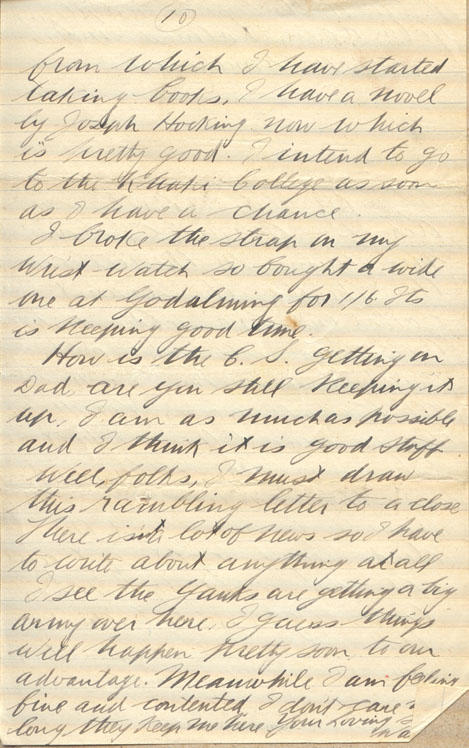 10
from which I have started
taking books. I have a novel
by Joseph Hocking now which
is pretty good. I intend to go
to the Khaki College as soon
as I have a chance.
I broke the strap on my
wrist watch so bought a wide
one at Godalming for 1/6. Its
is keeping good time.
How is the C. S. getting on
Dad, are you still keeping it
up, I am as much as possible
and I think it is good stuff.
Well, folks, I must draw
this rambling letter to a close
There isn't a lot of news so I have
to write about anything at all
I see the Yanks are getting a big
army over here. I guess things
will happen pretty soon to our
advantage. Meanwhile I am feeling
fine and contented I don't care
long they keep me here Your Loving